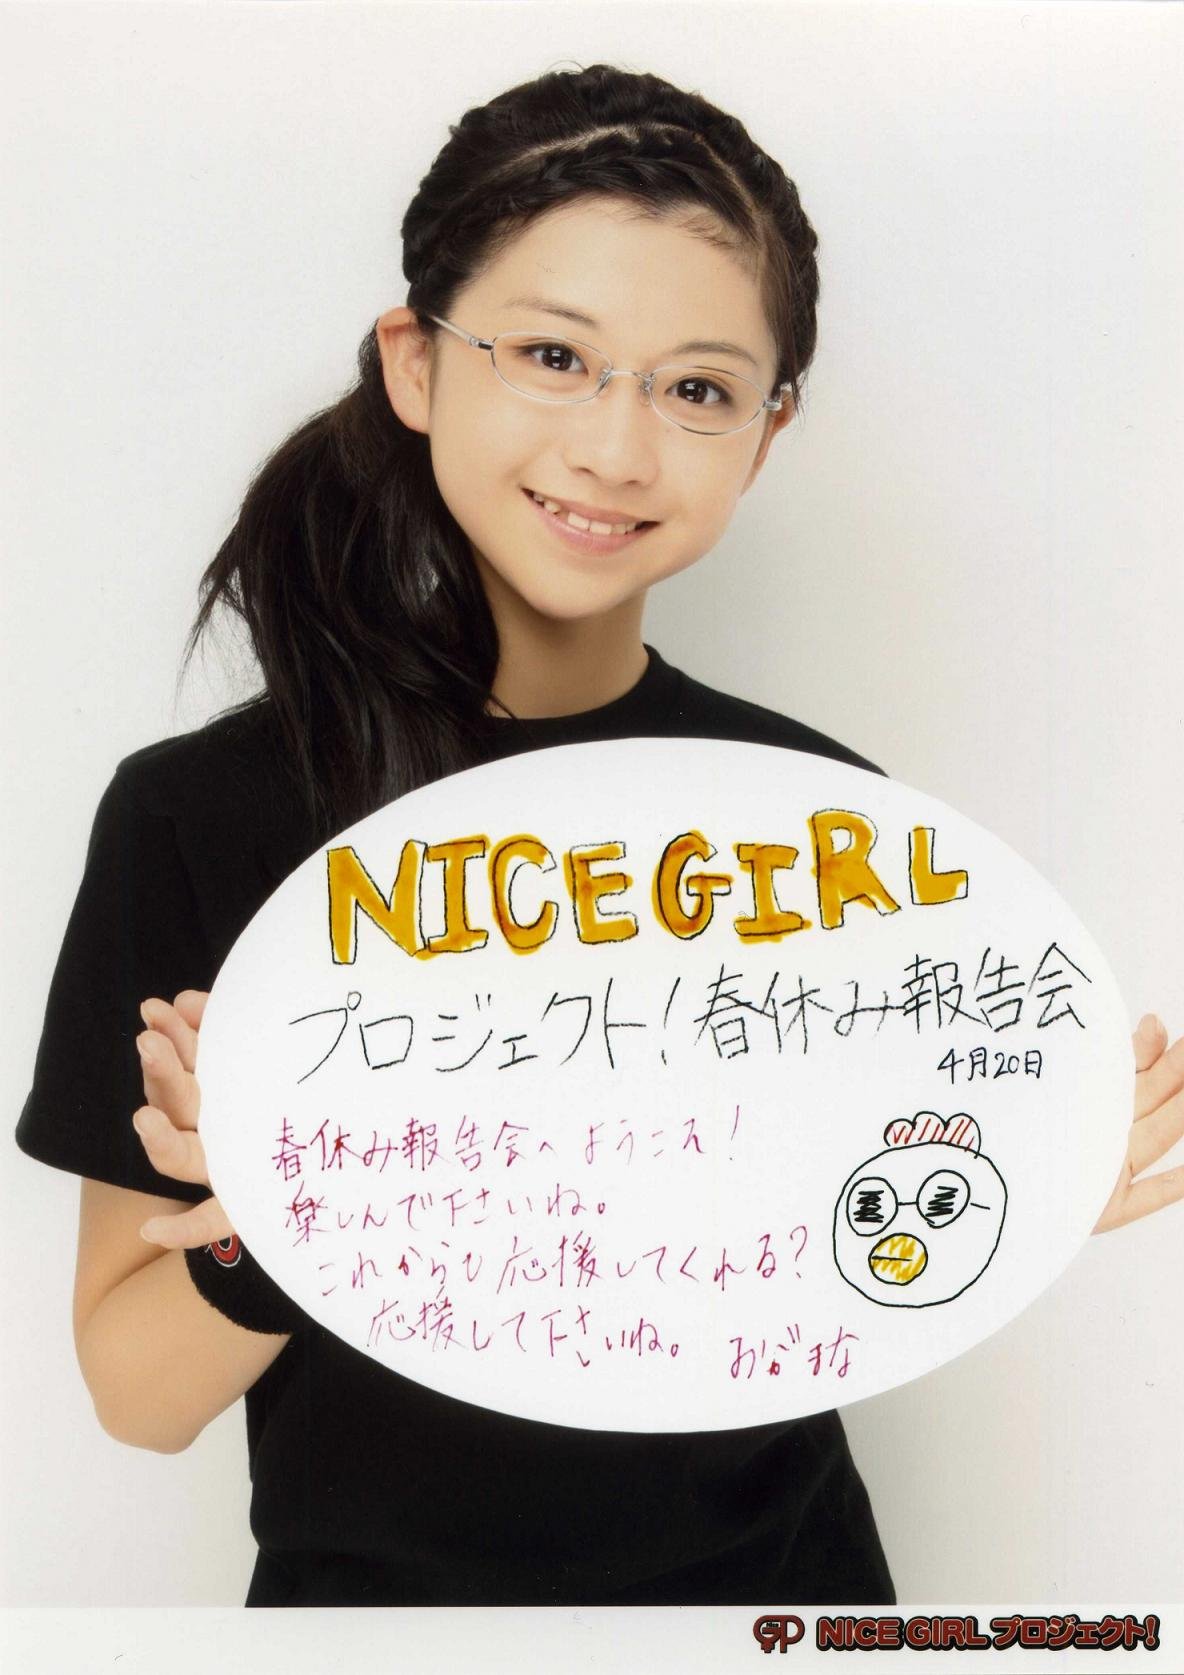 NICE GIRL
プロジェクト！春休み報告会
4月20日
春休み報告会へようこそ！
楽しんで下さいね。
これからも応援してくれる？
応援して下さいね。
おがまな
NICE GIRL プロジェクト！